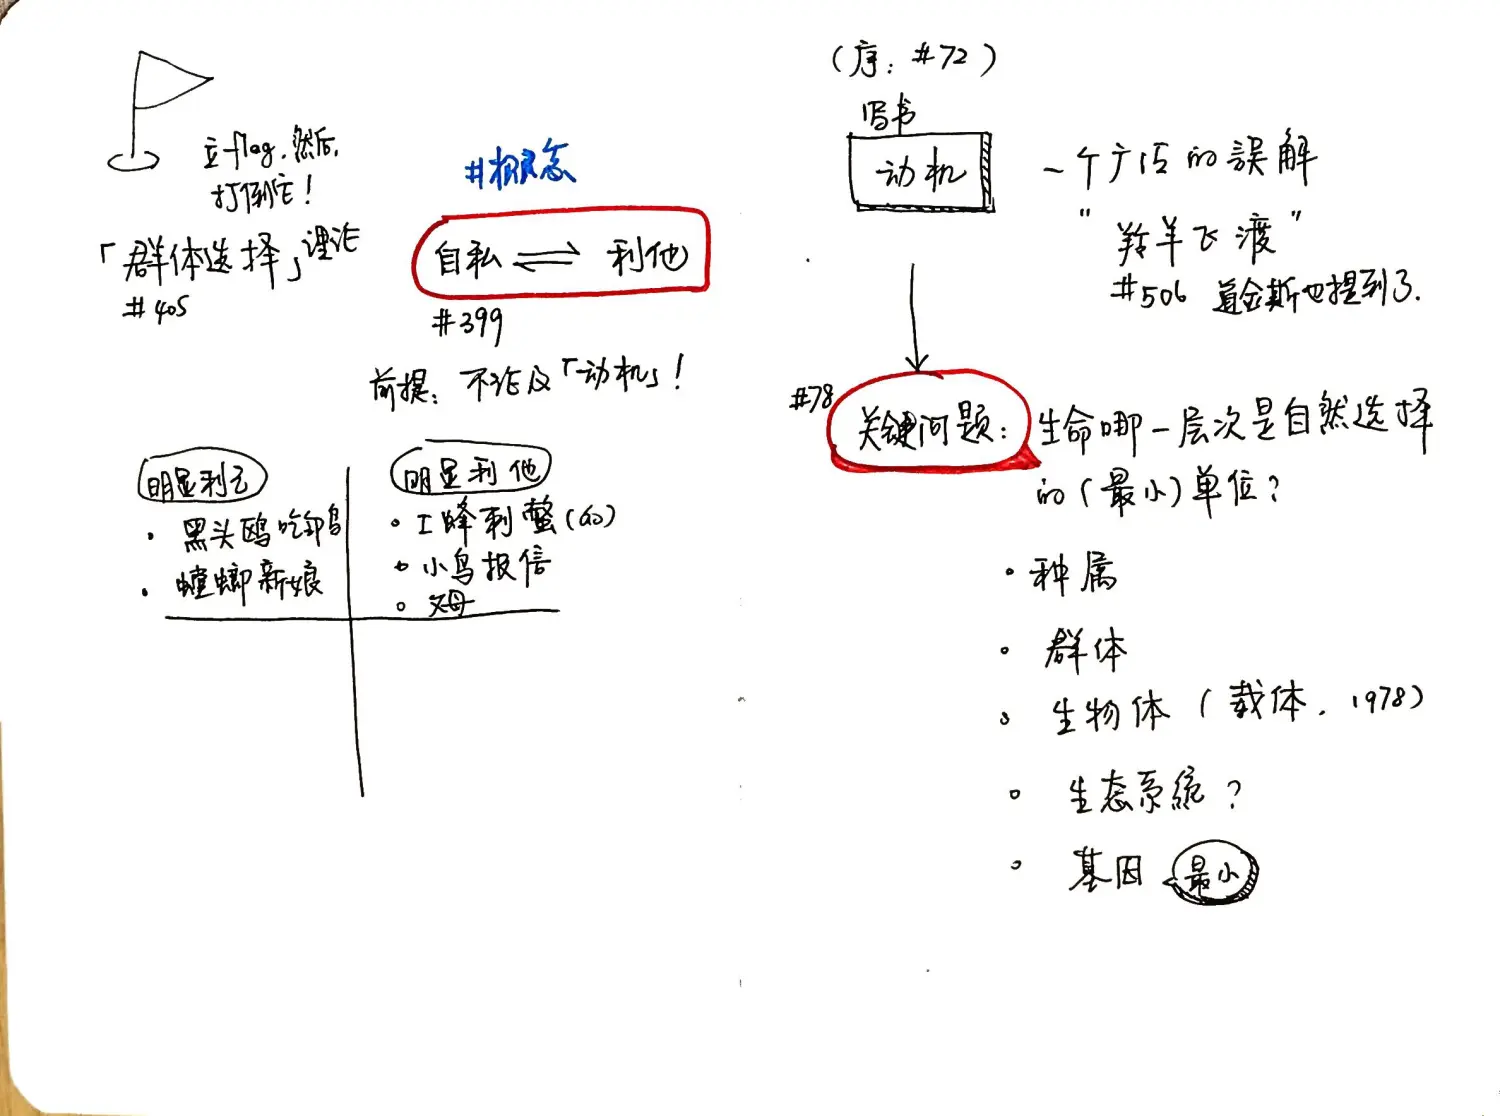 立flag,然后,
打倒它!
「群体选择」理论
#405
#概念
自私 ⇌ 利他
#399
前提:不论及「动机」!
明显利己
• 黑头鸥吃邻鸟
• 螳螂新娘
明显利他
• 工蜂刺螫(60)
• 小鸟报信
• 父母
(序:#72)
写书
动机
一个广泛的誤解
"羚羊飞渡"
#506 道金斯也提到了.
#78
关键问题:生命哪一层次是自然选择
的(最小)单位?
• 种属
• 群体
• 生物体(载体.1978)
• 生态系统?
• 基因 最小